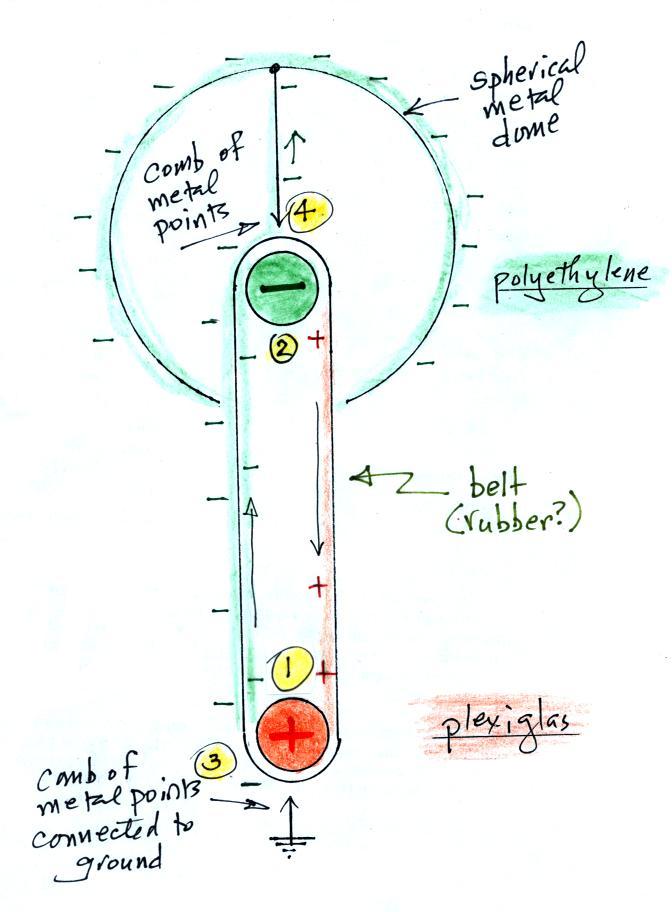 spherical
metal
dome
comb of
metal
points
4
polyethylene
2
belt
(rubber?)
1
plexiglas
3
comb of
metal points
connected to
ground